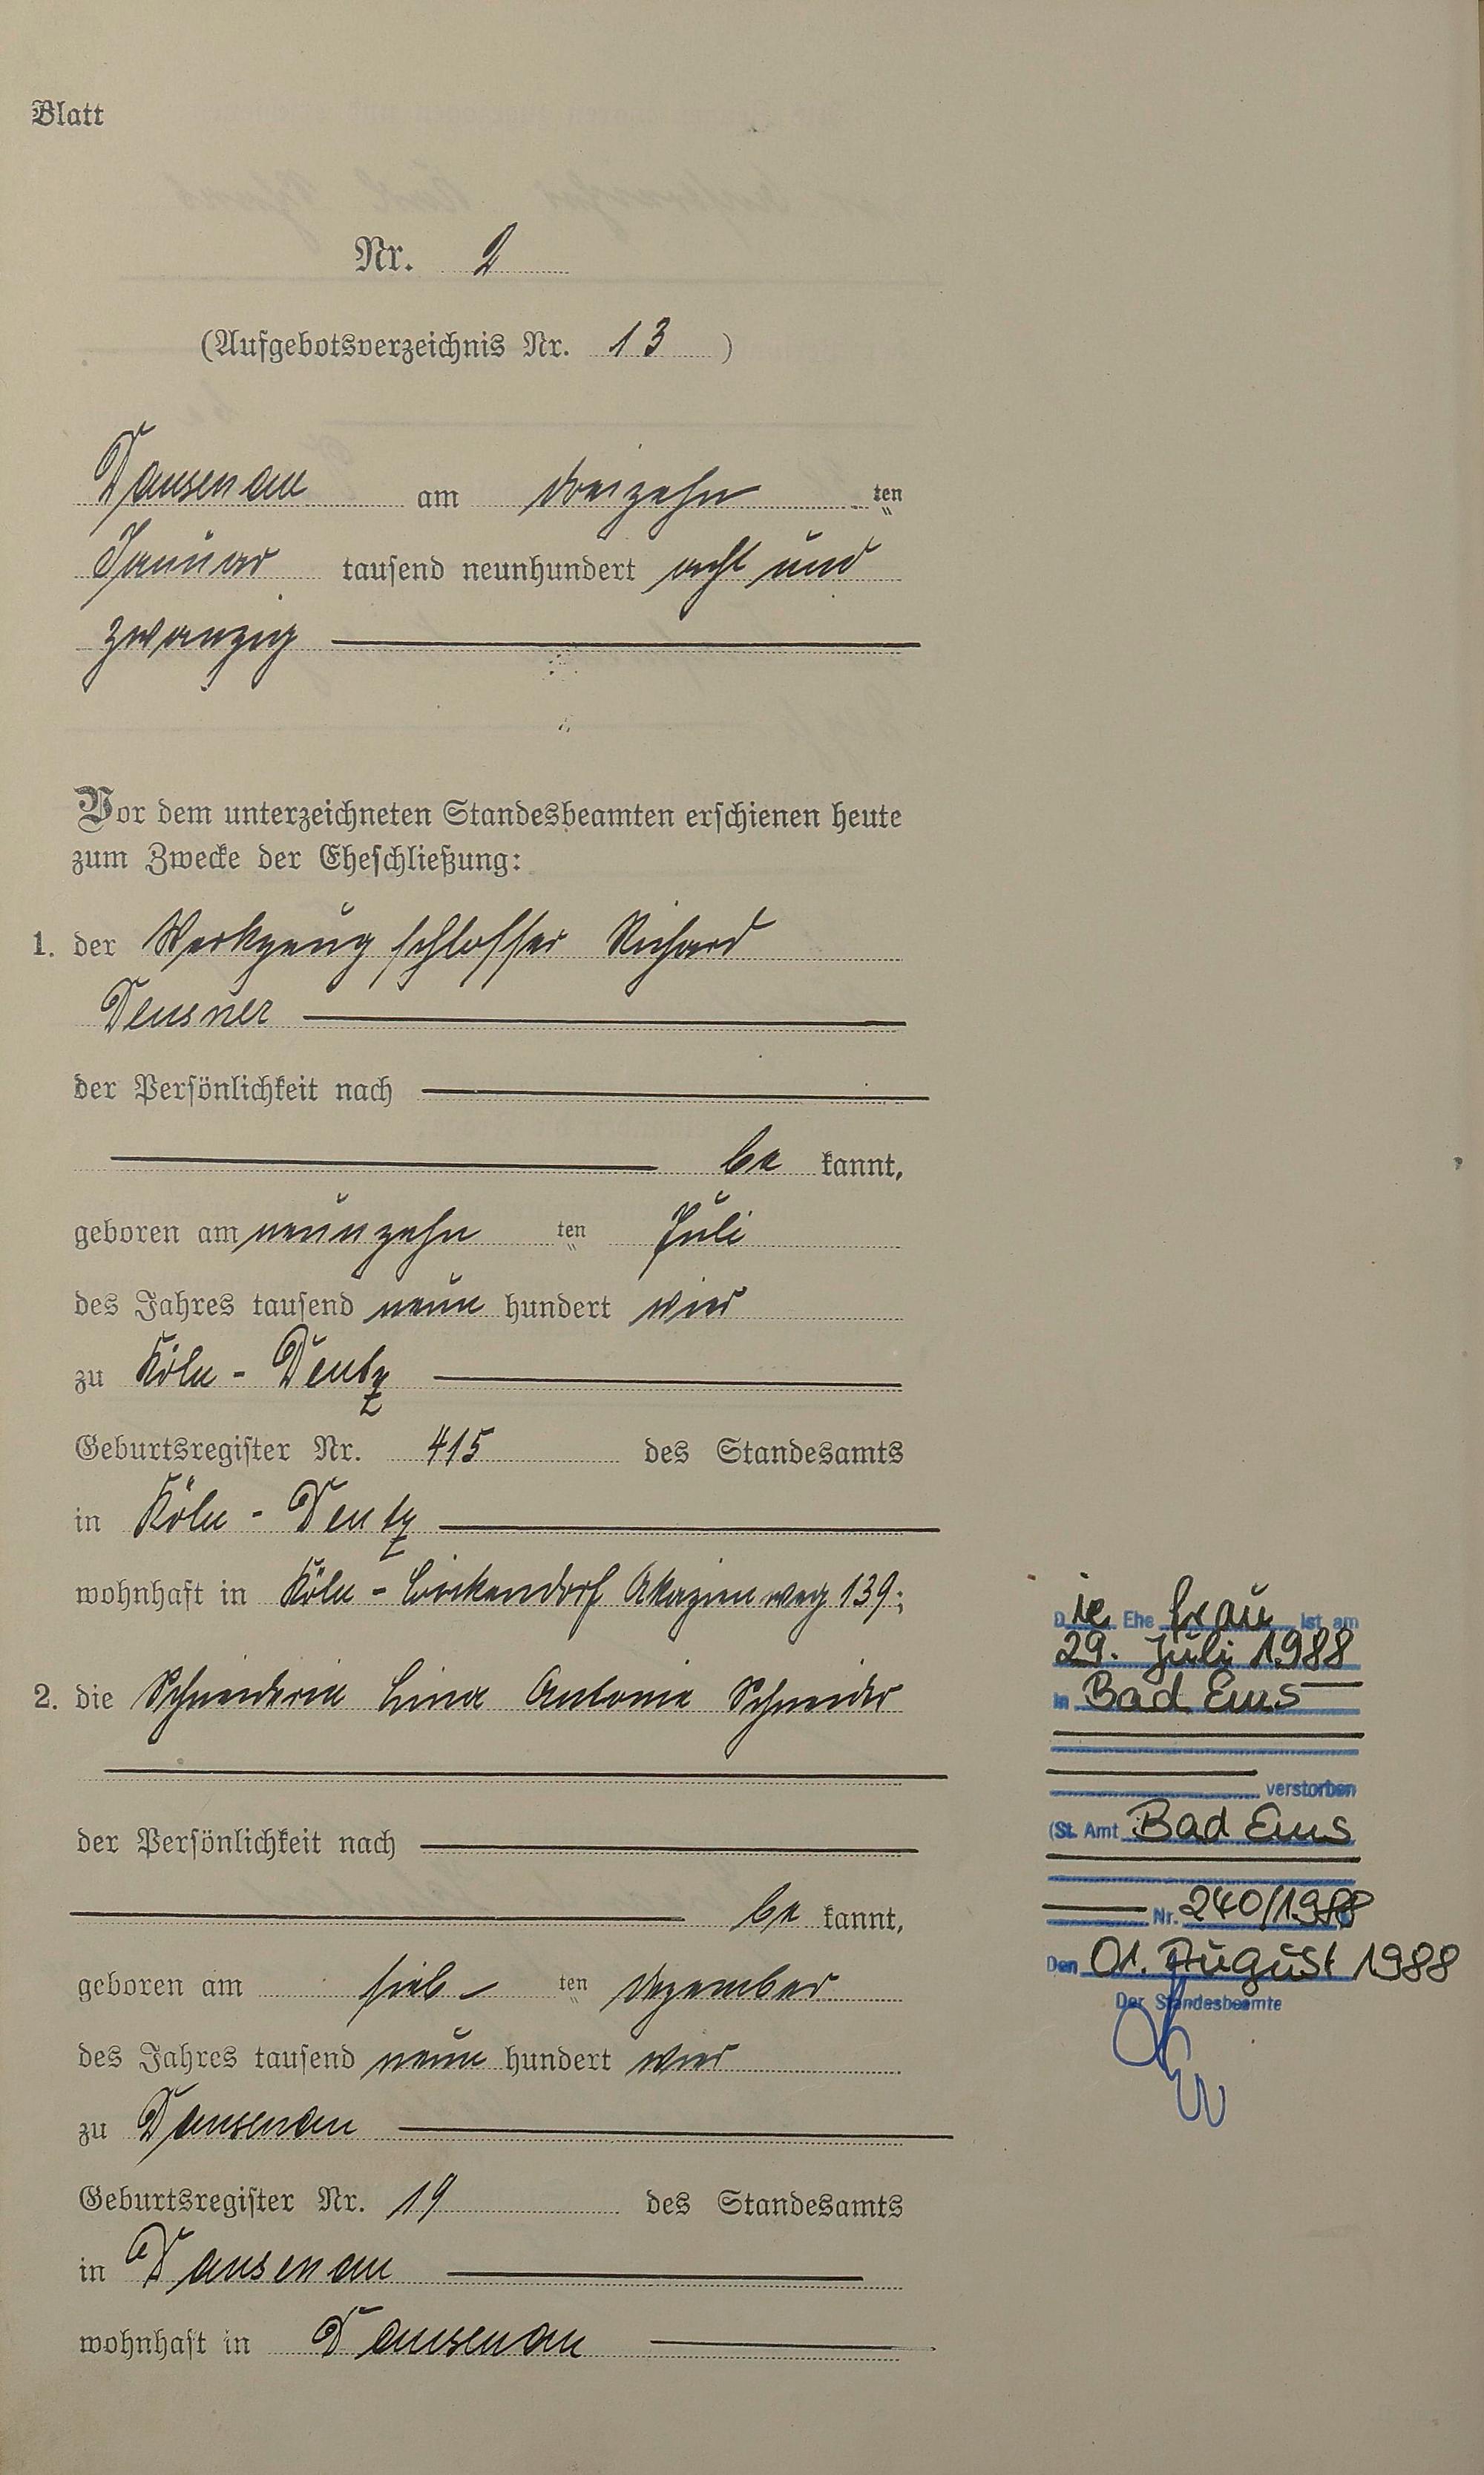 Blatt
Nr. 2
(Aufgebotsverzeichnis Nr. 13 )
Dausenau am dreizehn ten
Januar tausend neunhundert acht und
zwanzig
Vor dem unterzeichneten Standesbeamten erschienen heute
zum Zwecke der Eheschließung:
1. der Werkzeugschlosser Richard
Deusner
der Persönlichkeit nach
be kannt,
geboren am neunzehn ten Juli
des Jahres tausend neun hundert vier
zu Köln - Deutz
Geburtsregister Nr. 415 des Standesamts
in Köln - Deutz
wohnhaft in Köln - Bickendorf Akazienweg 139;
2. die Schneiderin Lina Antonie Schneider
der Persönlichkeit nach
be kannt,
geboren am sieb ten Dezember
des Jahres tausend neun hundert vier
zu Dausenau
Geburtsregister Nr. 19 des Standesamts
in Dausenau
wohnhaft in Dausenau
Die Ehefrau ist am
29. Juli 1988
in Bad Ems
verstorben
(St. Amt Bad Ems
Nr. 240/1988
Den 01. August 1988
Der Standesbeamte